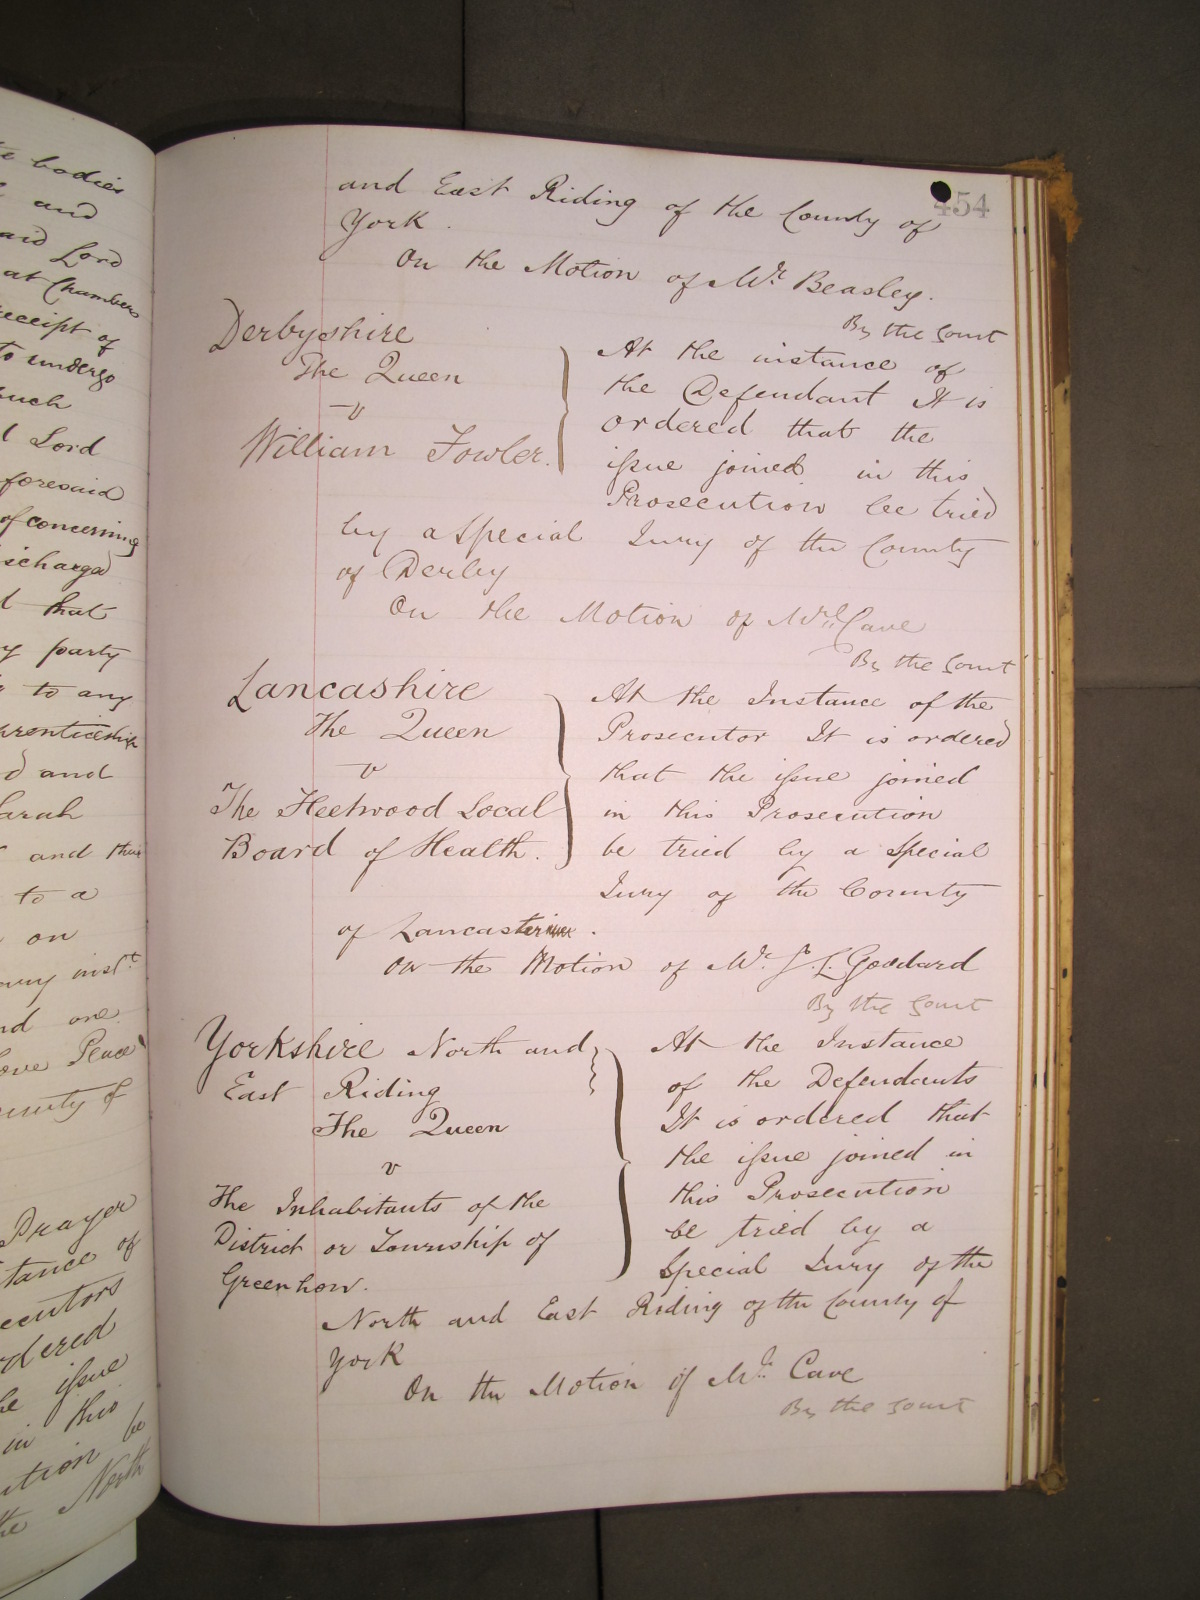 te bodies
and
aid Lord
at Chambers
eceipt of
to undergo
such
d Lord
foresaid
of concerning
ischarged
d that
y party
to any
prenticeship
d and
arah
and their
to a
on
ary inst.t
nd one
ove Peace
ounty of
Prayer
tance of
ecutors
rdered
e issue
in this
ution be
the North
454
and East Riding of the County of
York.
On the Motion of Mr. Beasley.
By the Court
Derbyshire
The Queen
v
William Fowler.
At the instance of
the Defendant It is
ordered that the
issue joined in this
Prosecution be tried
by a Special Jury of the County
of Derby
On the Motion of Mr. Cave
By the Court
Lancashire
The Queen
v
The Fleetwood Local
Board of Health.
At the Instance of the
Prosecutor It is ordered
that the issue joined
in this Prosecution
be tried by a Special
Jury of the County
of Lancaster.
On the Motion of Mr. J. L. Goddard
By the Court
Yorkshire North and
East Riding
The Queen
v
The Inhabitants of the
District or Township of
Greenhow.
At the Instance
of the Defendants
It is ordered that
the issue joined in
this Prosecution
be tried by a
Special Jury of the
North and East Riding of the County of
York
On the Motion of Mr. Cave
By the Court